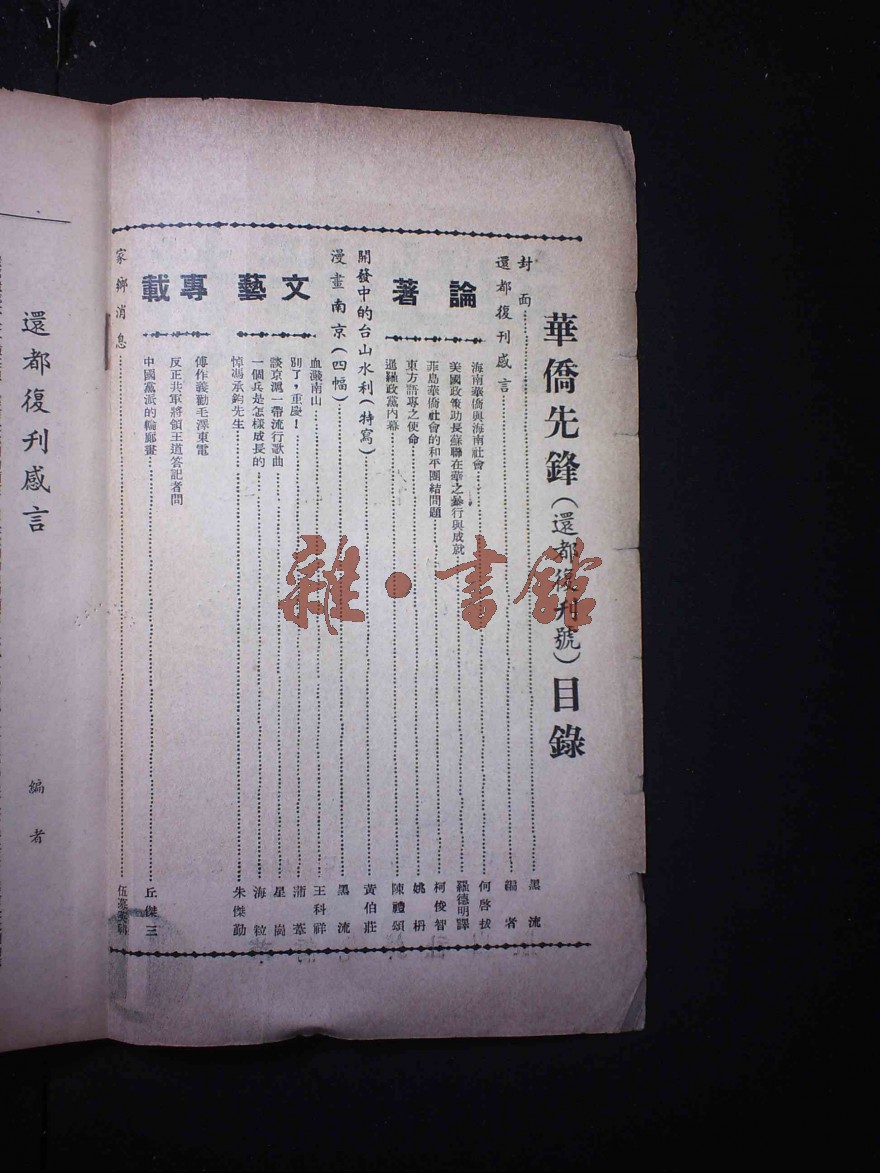 華僑先鋒（還都復刊號）目錄
封面……黑流
還都復刊感言……編者
論著
海南華僑與海南社會……何啓拔
美國政策助長蘇聯在華之暴行與成就……羅德明譯
菲島華僑社會的和平團結問題……柯俊智
東方語專之使命……姚枬
暹羅政黨內幕……陳禮頌
開發中的台山水利（特寫）……黃伯莊
漫畫南京（四幅）……黑流
文藝
血濺南山……王科祥
別了，重慶！……蒲葦
談京滬一帶流行歌曲……星崗
一個兵是怎樣成長的……海粒
悼馮承鈞先生……朱傑勤
專載
傅作義勸毛澤東電
反正共軍將領王道答記者問
中國黨派的輪廓畫……丘傑三
家鄉消息……伍
還都復刊感言
編者
雜·書館